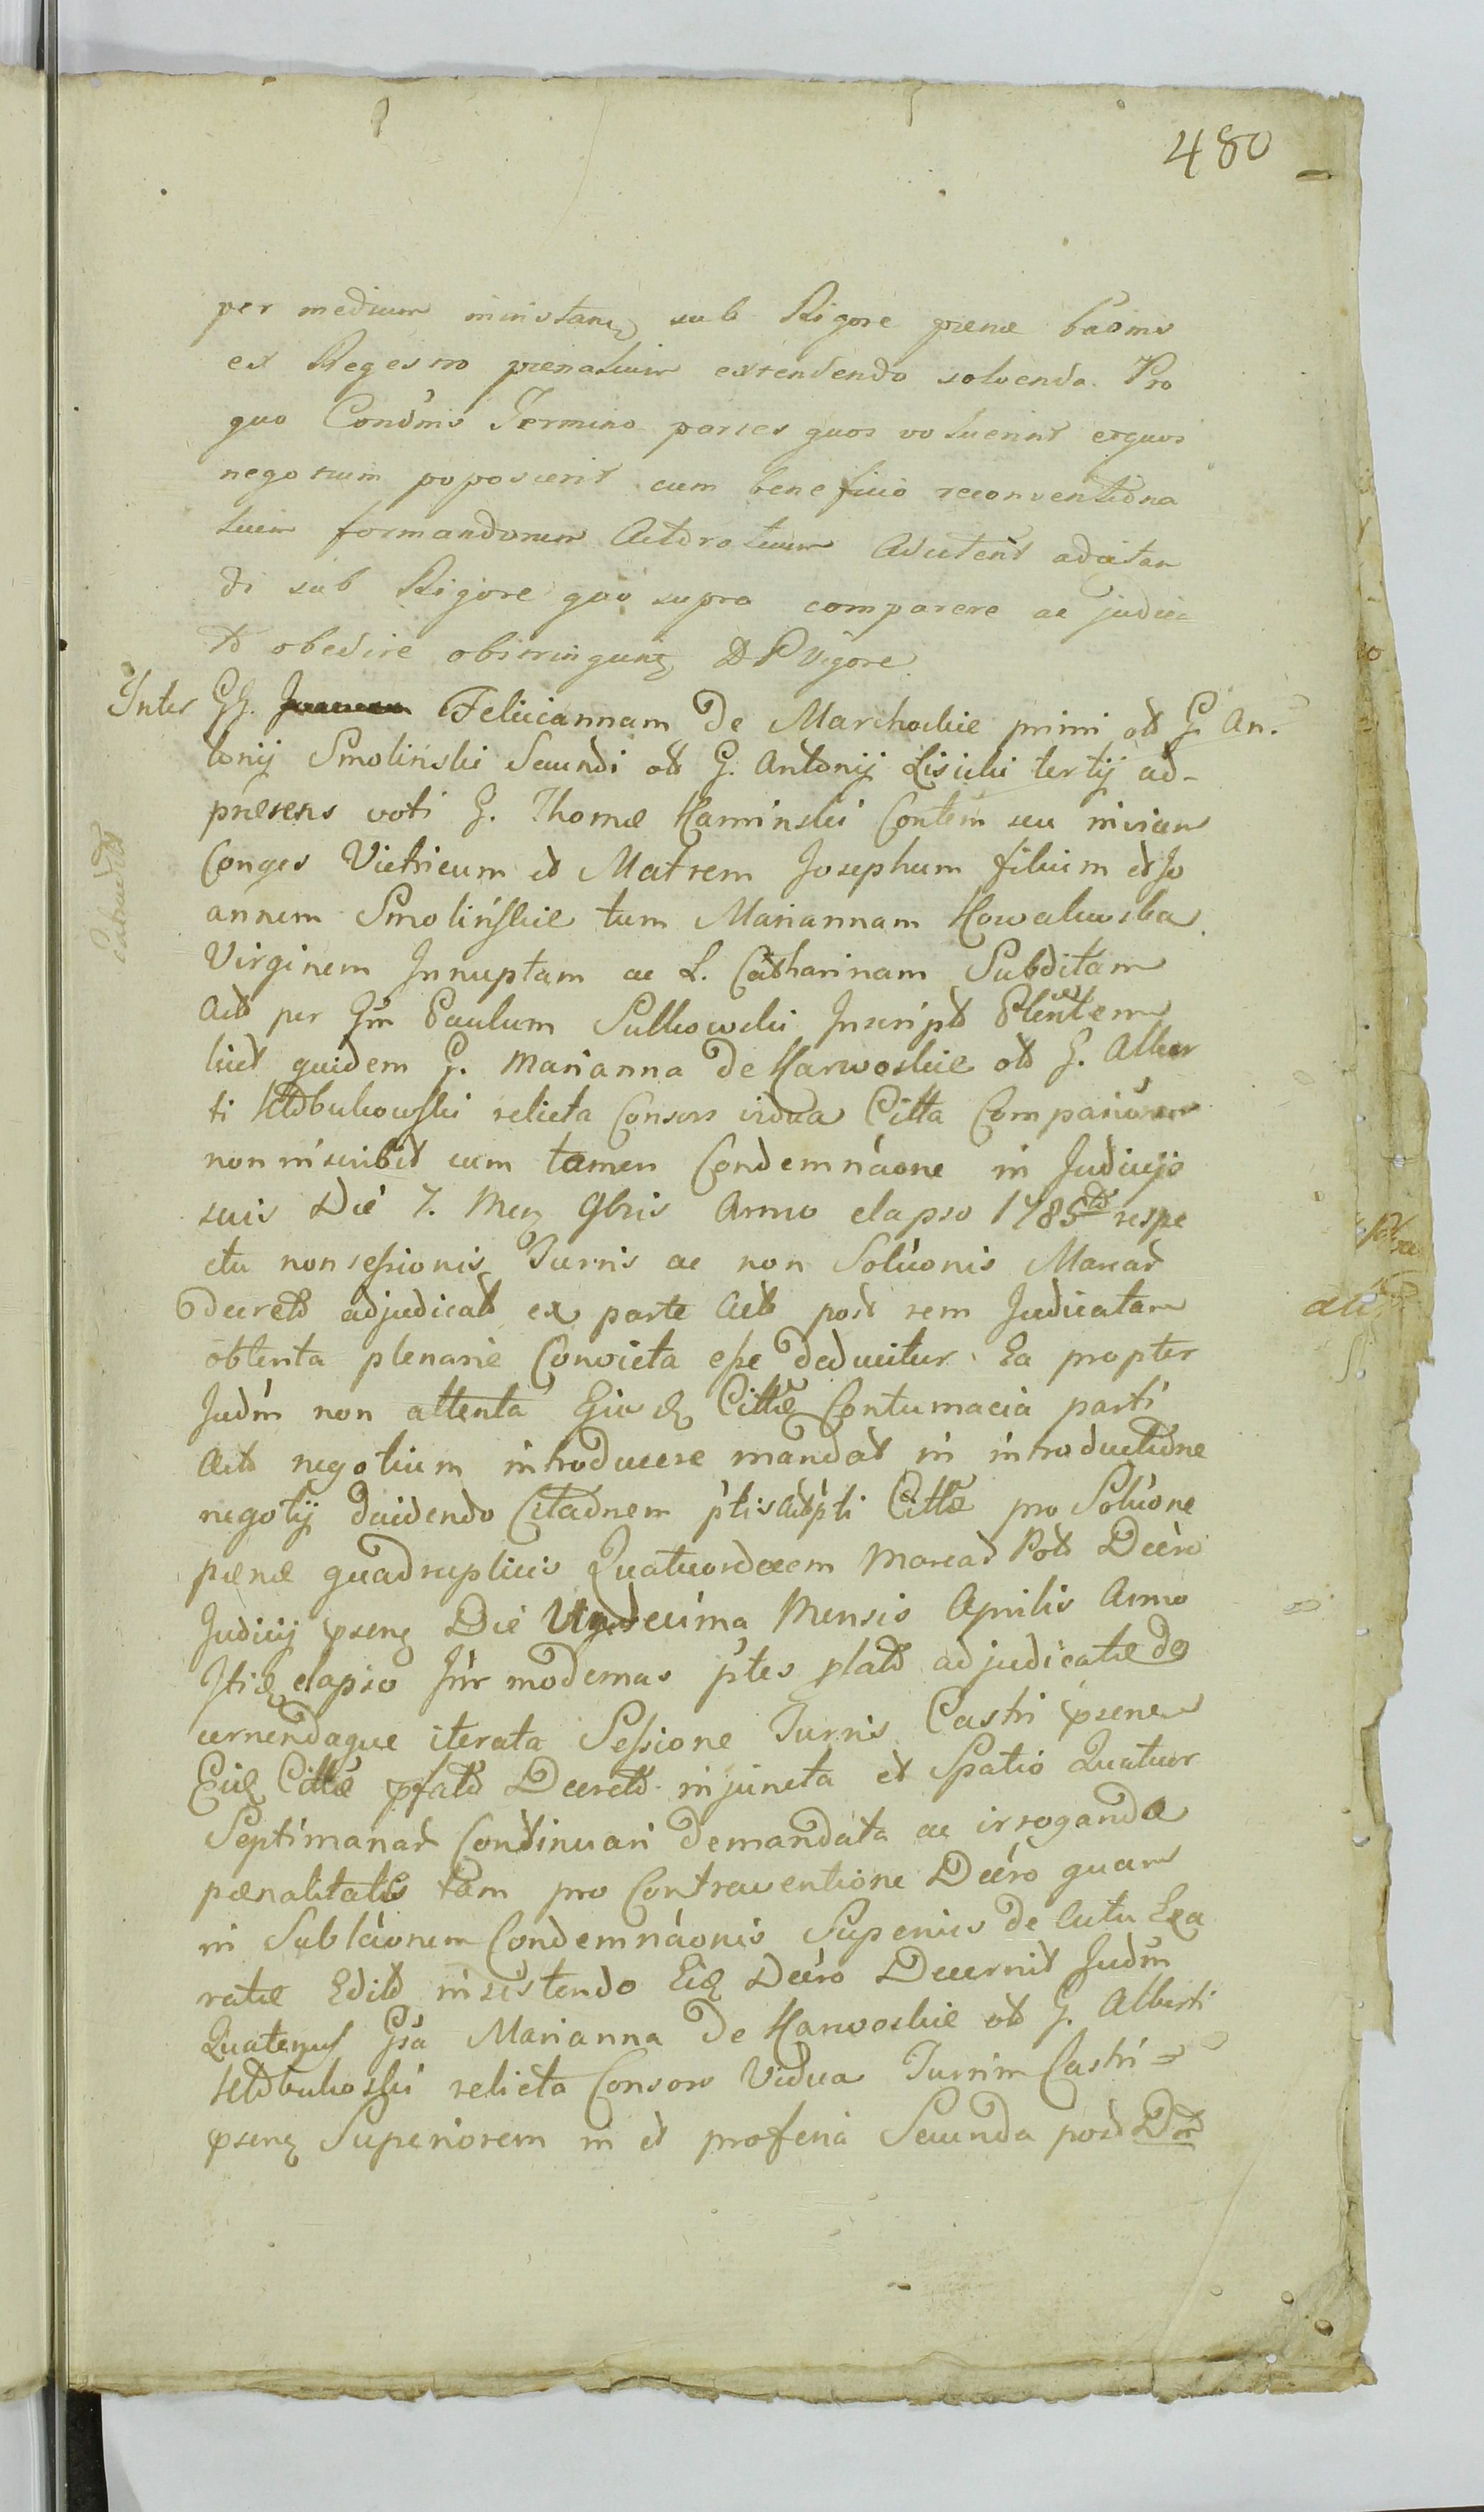 480
per medium ministariq sub Rigore pænæ baōnis
ex Regestro pænalium extendendo solvenda. Pro
quo Condnīs Termino partes quos voluerint et quos
negotium poposcerit cum beneficio reconventiōna
lium formandorum Actōratuum Adcitent adcitan
di sub Rigore quō supra comparere ac judica
tō obedire obstringunt DPVigore
Inter GG. Feliciannam de Marchockie primi ōtō G. An-
tonij Smolinski Secundi ōtō G. Antonij Lisicki tertij ad-
præsens voti G. Thomæ Kaminski Contēm seu invicem
Conges Vitricum et Matrem Josephum filium et Jo
annem Smolińskie tum Mariannam Kowalewska
Virginem Innuptam ac L. Catharinam Subditam
Actō per Gm Paulum Sulkowski Inscript Plenitem
licet quidem G. Marianna de Karwoskie ōtō G. Alber
ti relicta Consors vidua Citta Comparitiōnem
non inscribit cum tamen Condemnáone in Judicijs
suis Die 7. Men 9bris Anno elapso 1785tō respe
ctu non sessionis Turris ac non Solúonis Marcar
decretō adjudicat ex parte Actō post rem Judicatam
obtenta plenarie Convicta esse deducitur. Ea propter
Judm non attenta Ejusd Cittæ Contumacia parti
Actō negotium introducere mandat in introductiōne
negotij decidendo Citaōnem ptis Actō pti Cittæ pro Solúone
pænæ quadruplicis Quatuordecem Marcar Polō Decro
Judicij psenq Die Undecima Mensis Aprilis Anno
Itidq elapso Intr modernas ptes platō adjudicatæ de
cernendaque iterata Sessione Turris Castri psenen
Eidq Cittæ pfatō Decretō injuncta et Spatio Quatuor
Septimanar Continuari demandata ac irroganda
pænalitatis tam pro Contraventione Decro quam
in Sublaonem Condemnáonis Superius de Actu Exa
ratæ Editō insistendo Eidq Decro Decernit Judm
Quatenus Gsa Marianna de Karwoskie ōtō G. Alberti
relicta Consors Vidua Turrim Castri
psenq Superiorem in et pro feria Secunda post Dtō